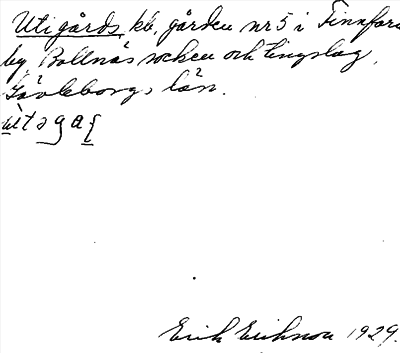 Utigårds kb, gården nr 5 i Finnfara
by Bollnäs socken och tingslag,
Gävleborgs län.
Erik Erikson 1929.